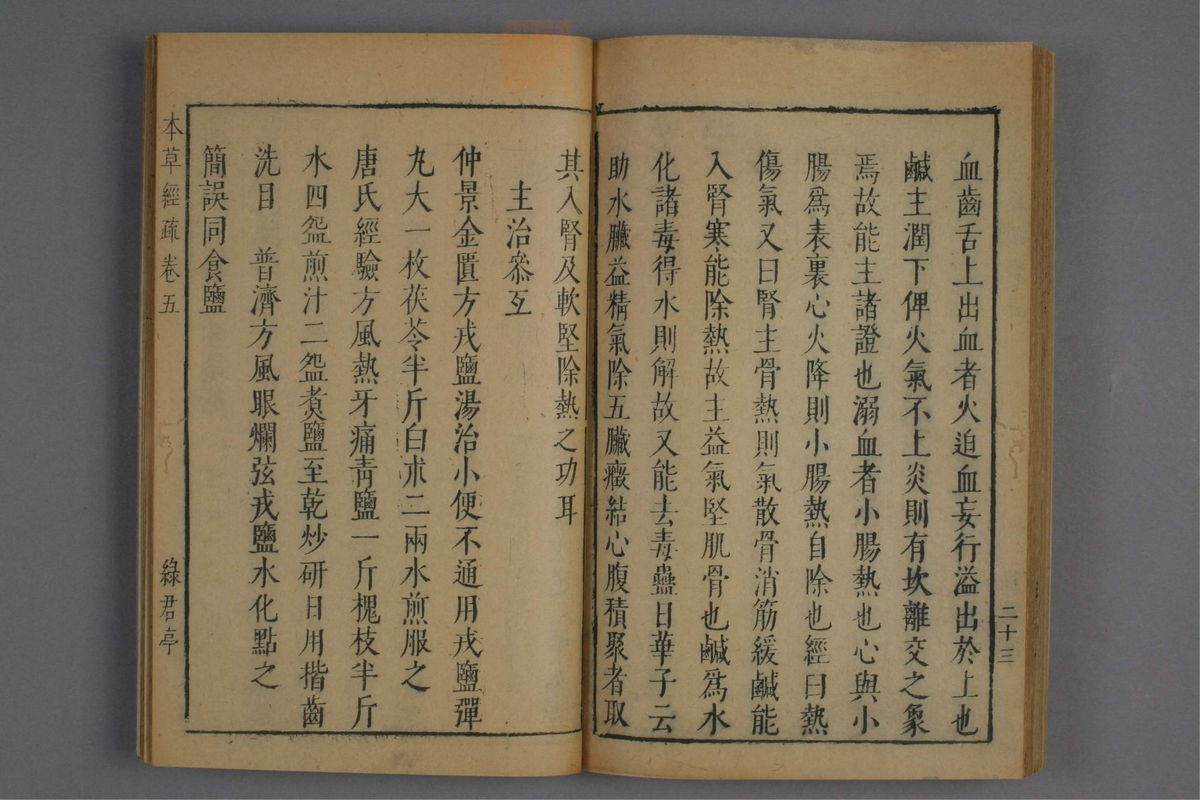 血齒舌上出血者火迫血妄行溢出於上也
鹹主潤下俾火氣不上炎則有坎離交之象
焉故能主諸證也溺血者小腸熱也心與小
腸爲表裏心火降則小腸熱自除也經曰熱
傷氣又曰腎主骨熱則氣散骨消筋緩鹹能
入腎寒能除熱故主益氣堅肌骨也鹹爲水
化諸毒得水則解故又能去毒蠱日華子云
助水臟益精氣除五臟癥結心腹積聚者取
二十三
其入腎及軟堅除熱之功耳
主治叅互
仲景金匱方戎鹽湯治小便不通用戎鹽彈
丸大一枚茯苓半斤白朮二兩水煎服之
唐氏經驗方風熱牙痛靑鹽一斤槐枝半斤
水四盌煎汁二盌煮鹽至乾炒研日用揩齒
洗目　普濟方風眼爛弦戎鹽水化點之
簡誤同食鹽
本草經疏卷五
綠君亭